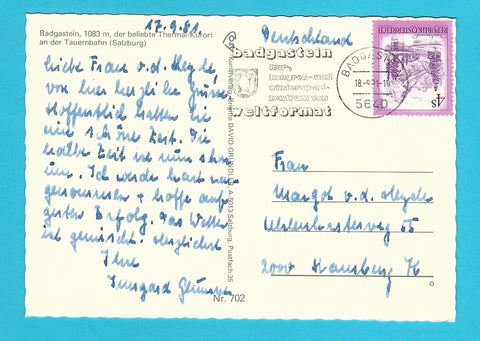 Badgastein, 1083 m, der beliebte Thermal-Kurort
an der Tauernbahn (Salzburg)
17.9.81
Liebe Frau v. d. Heyde,
von hier herzliche Grüsse
Hoffentlich hatten Sie
eine schöne Zeit. Die
halbe Zeit ist nun schon
um. Ich werde hart
genommen + hoffe auf
guten Erfolg. Das Wetter
ist gemischt. Herzlichst
Ihre
Irmgard
Nr. 702
DAVID-GRÜNDLER, A-5013 Salzburg, Postfach 35
Deutschland
badgastein
kur-,
kongreß- und
wintersport-
zentrum von
weltformat
BADGASTEIN
18.-9.81-
5640
REPUBLIK ÖSTERREICH
4S
Frau
Margot v. d. Heyde
Uhlenhorsterweg 55
2000 Hamburg